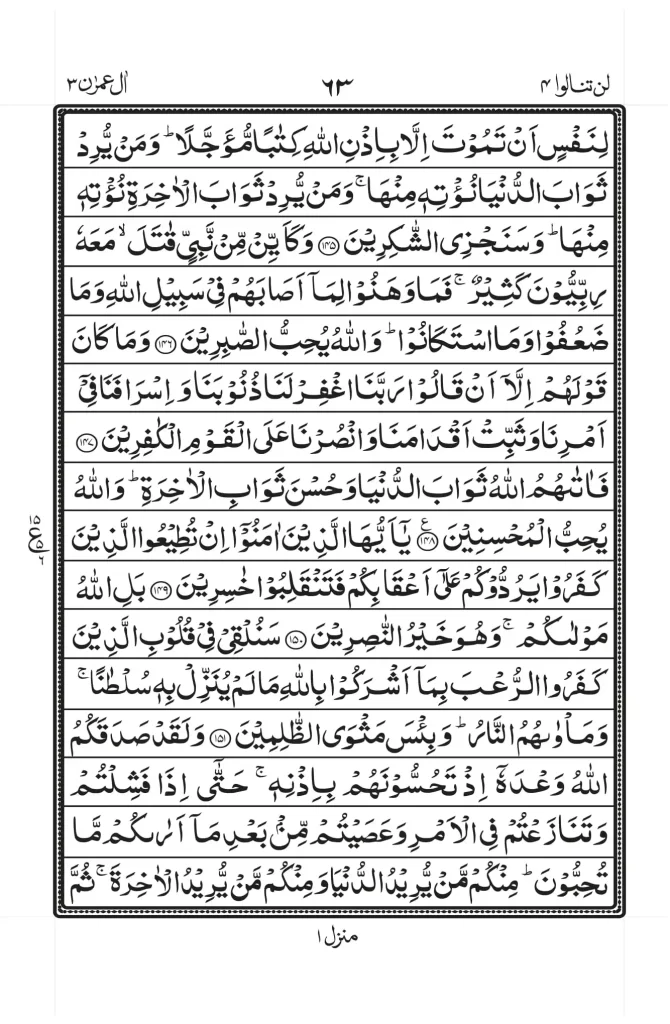 لن تنالوا ۴ ۶۳ اٰل عمرٰن ۳
لِنَفْسٍ اَنْ تَمُوْتَ اِلَّا بِاِذْنِ اللّٰهِ كِتٰبًا مُّؤَجَّلًا ؕ وَمَنْ يُّرِدْ
ثَوَابَ الدُّنْيَا نُؤْتِهٖ مِنْهَا ۚ وَمَنْ يُّرِدْ ثَوَابَ الْاٰخِرَةِ نُؤْتِهٖ
مِنْهَا ؕ وَسَنَجْزِى الشّٰكِرِيْنَ ﴿۱۴۵﴾ وَكَاَيِّنْ مِّنْ نَّبِىٍّ قٰتَلَ ۙ مَعَهٗ
رِبِّيُّوْنَ كَثِيْرٌ ۚ فَمَا وَهَنُوْا لِمَاۤ اَصَابَهُمْ فِىْ سَبِيْلِ اللّٰهِ وَمَا
ضَعُفُوْا وَمَا اسْتَكَانُوْا ؕ وَاللّٰهُ يُحِبُّ الصّٰبِرِيْنَ ﴿۱۴۶﴾ وَمَا كَانَ
قَوْلَهُمْ اِلَّاۤ اَنْ قَالُوْا رَبَّنَا اغْفِرْ لَنَا ذُنُوْبَنَا وَاِسْرَافَنَا فِىْۤ
اَمْرِنَا وَثَبِّتْ اَقْدَامَنَا وَانْصُرْنَا عَلَى الْقَوْمِ الْكٰفِرِيْنَ ﴿۱۴۷﴾
فَاٰتٰىهُمُ اللّٰهُ ثَوَابَ الدُّنْيَا وَحُسْنَ ثَوَابِ الْاٰخِرَةِ ؕ وَاللّٰهُ
يُحِبُّ الْمُحْسِنِيْنَ ﴿۱۴۸﴾ ع يٰۤاَيُّهَا الَّذِيْنَ اٰمَنُوْۤا اِنْ تُطِيْعُوا الَّذِيْنَ
كَفَرُوْا يَرُدُّوْكُمْ عَلٰٓى اَعْقَابِكُمْ فَتَنْقَلِبُوْا خٰسِرِيْنَ ﴿۱۴۹﴾ بَلِ اللّٰهُ
مَوْلٰٮكُمْ ۚ وَهُوَ خَيْرُ النّٰصِرِيْنَ ﴿۱۵۰﴾ سَنُلْقِىْ فِىْ قُلُوْبِ الَّذِيْنَ
كَفَرُوا الرُّعْبَ بِمَاۤ اَشْرَكُوْا بِاللّٰهِ مَا لَمْ يُنَزِّلْ بِهٖ سُلْطٰنًا ۚ
وَمَاْوٰٮهُمُ النَّارُ ؕ وَبِئْسَ مَثْوَى الظّٰلِمِيْنَ ﴿۱۵۱﴾ وَلَقَدْ صَدَقَكُمُ
اللّٰهُ وَعْدَهٗۤ اِذْ تَحُسُّوْنَهُمْ بِاِذْنِهٖ ۚ حَتّٰٓى اِذَا فَشِلْتُمْ
وَتَنَازَعْتُمْ فِى الْاَمْرِ وَعَصَيْتُمْ مِّنْۢ بَعْدِ مَاۤ اَرٰٮكُمْ مَّا
تُحِبُّوْنَ ؕ مِنْكُمْ مَّنْ يُّرِيْدُ الدُّنْيَا وَمِنْكُمْ مَّنْ يُّرِيْدُ الْاٰخِرَةَ ۚ ثُمَّ
منزل ۱